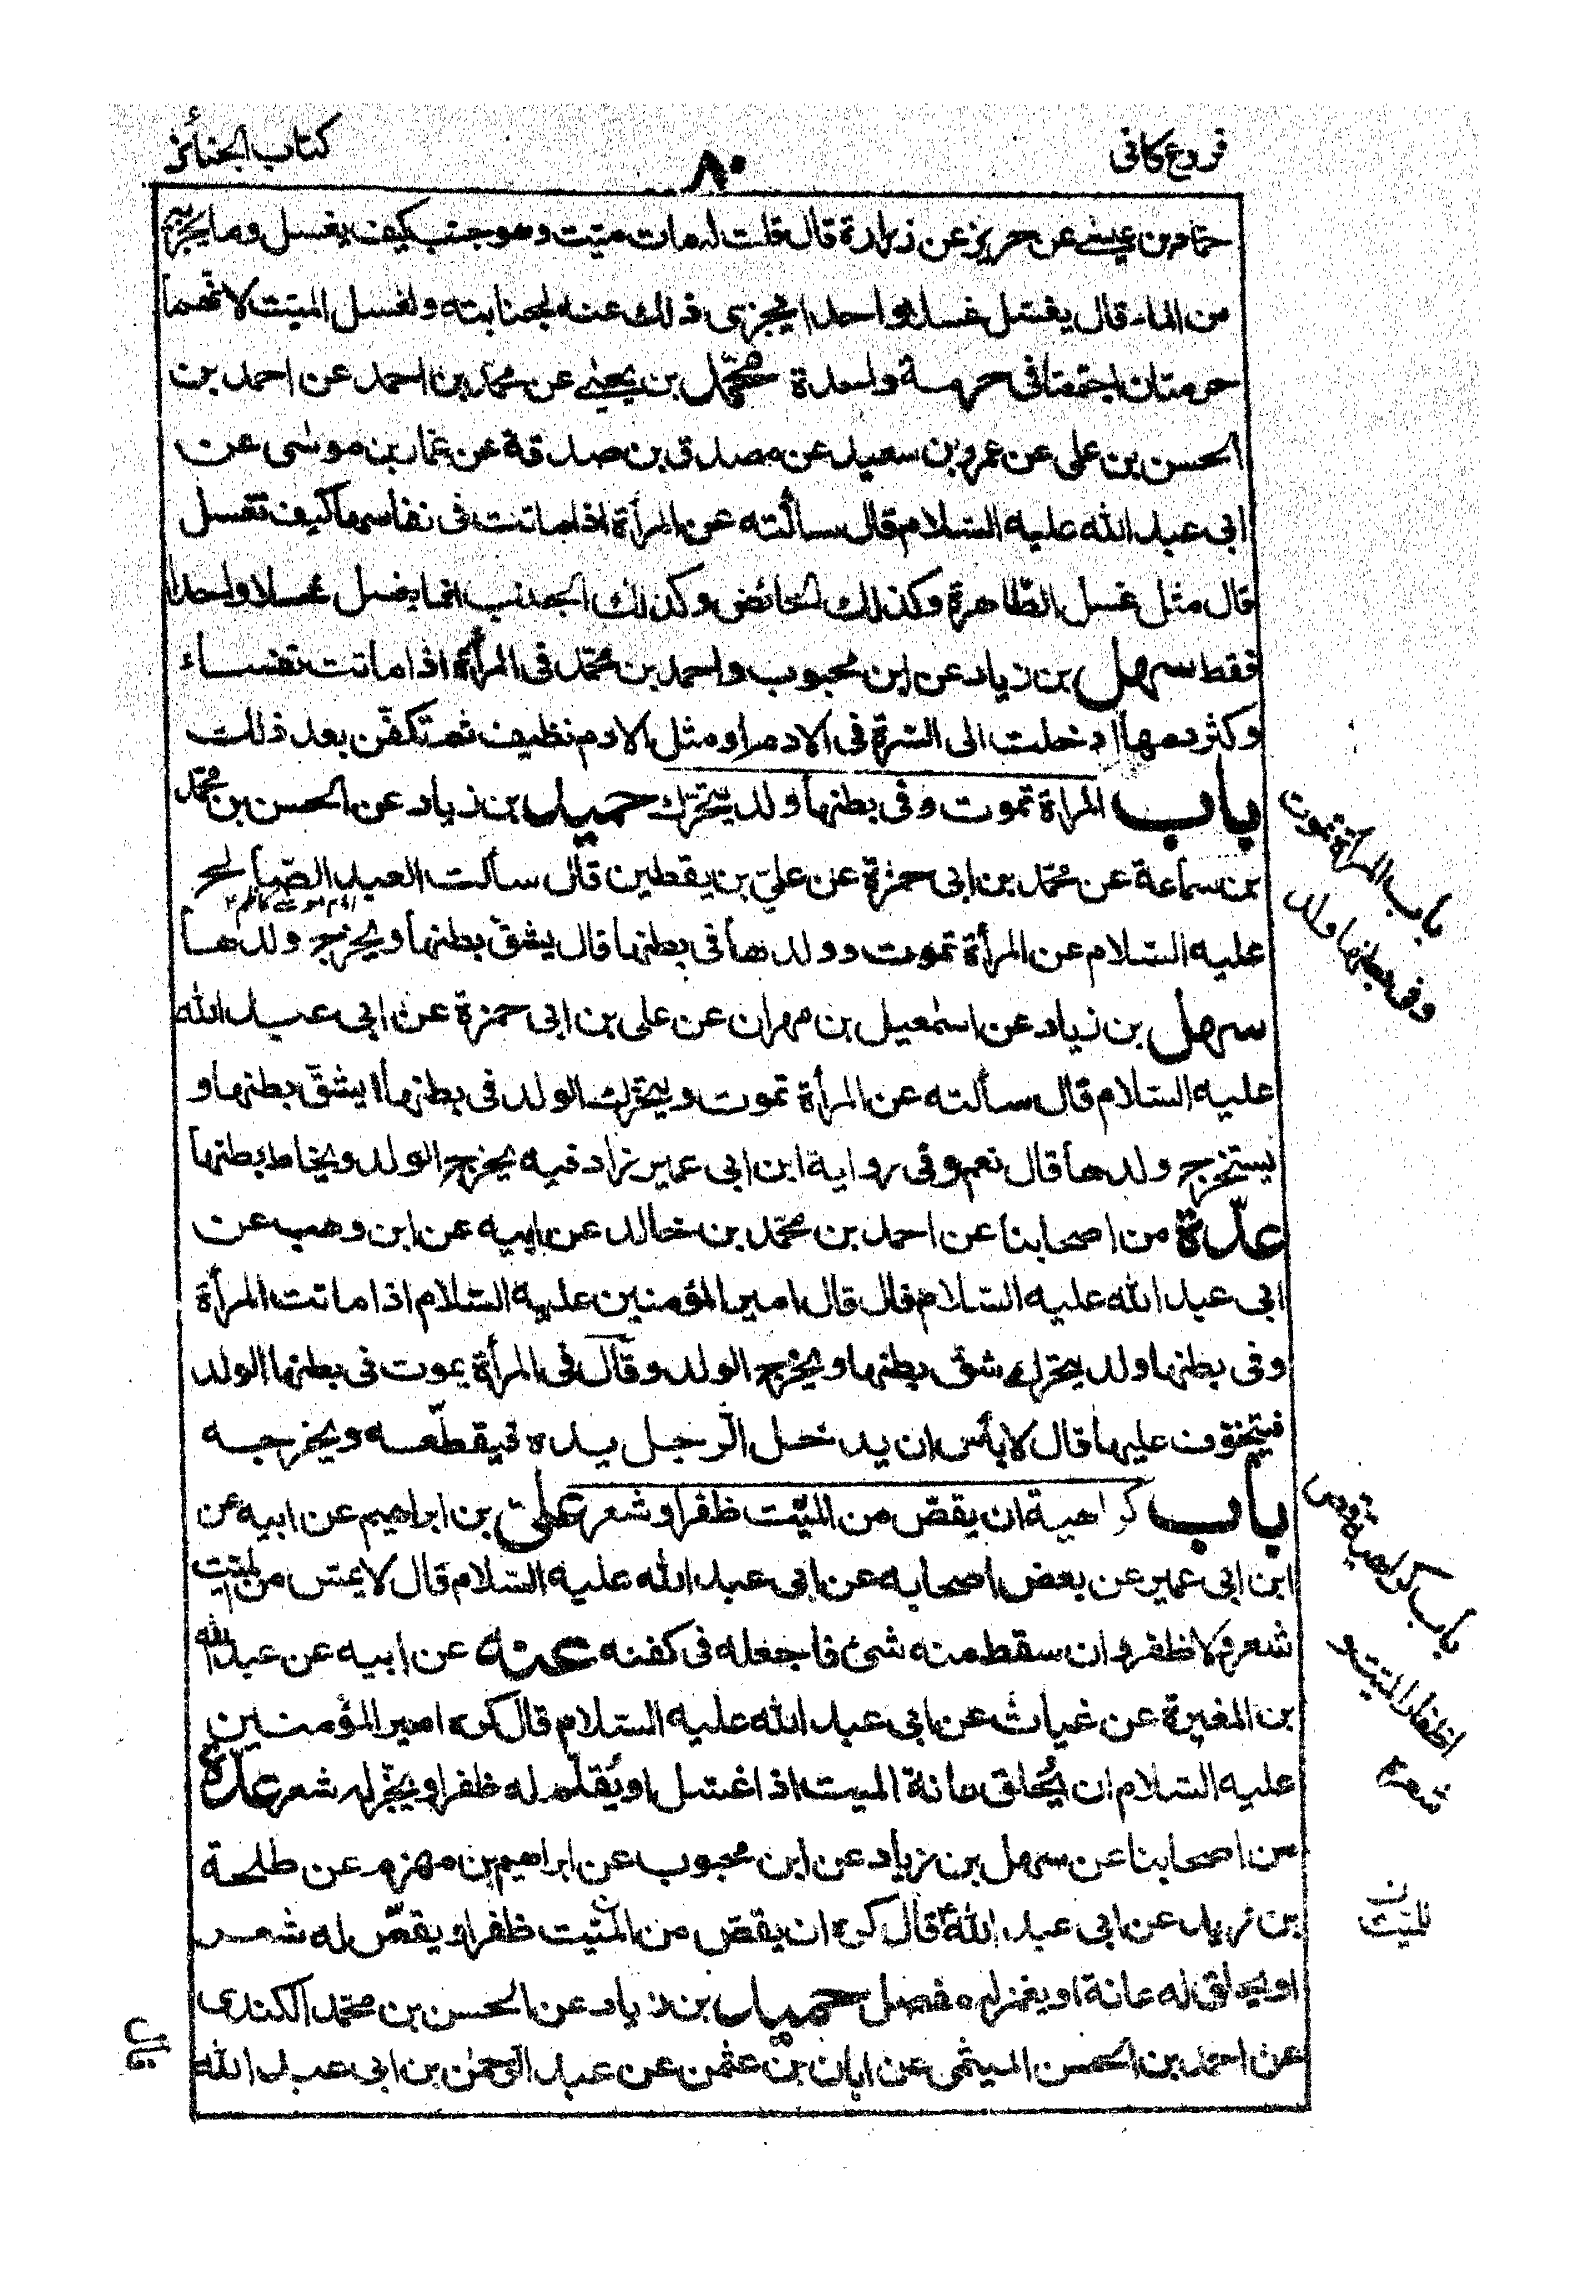 فروع كافى
٨٠
كتاب الجنائز
حماد بن عيسى عن حريز عن زرارة قال قلت له مات ميت وهو جنب كيف يغسل وما يجزيه
من الماء قال يغسل غسلا واحدا يجزى ذلك عنه لجنابته ولغسل الميت لانهما
حرمتان اجتمعتا فى حرمة واحدة محمد بن يحيى عن محمد بن احمد عن احمد بن
الحسن بن على عن عمرو بن سعيد عن مصدق بن صدقة عن عمار بن موسى عن
ابى عبد الله عليه السلام قال سألته عن المرأة اذا ماتت فى نفاسها كيف تغسل
قال مثل غسل الطاهرة وكذلك الحائض وكذلك الجنب انما يغسل غسلا واحدا
فقط سهل بن زياد عن ابن محبوب واحمد بن محمد فى المرأة اذا ماتت نفساء
وكثر دمها ادخلت الى السرة فى الادم او مثل الادم نظيف ثم تكفن بعد ذلك
باب المرأة تموت وفى بطنها ولد يتحرك حميد بن زياد عن الحسن بن محمد
بن سماعة عن محمد بن ابى حمزة عن علي بن يقطين قال سألت العبد الصالح
عليه السلام عن المرأة تموت وولدها فى بطنها قال يشق بطنها ويخرج ولدها
سهل بن زياد عن اسمعيل بن مهران عن على بن ابى حمزة عن ابى عبد الله
عليه السلام قال سألته عن المرأة تموت ويتحرك الولد فى بطنها أيشق بطنها و
يستخرج ولدها قال نعم وفى رواية ابن ابى عمير زاد فيه يخرج الولد ويخاط بطنها
عدة من اصحابنا عن احمد بن محمد بن خالد عن ابيه عن ابن وهب عن
ابى عبد الله عليه السلام قال قال امير المؤمنين عليه السلام اذا ماتت المرأة
وفى بطنها ولد يتحرك شق بطنها ويخرج الولد وقال فى المرأة يموت فى بطنها الولد
فيتخوف عليها قال لا بأس ان يدخل الرجل يده فيقطعه ويخرجه
باب كراهية ان يقص من الميت ظفر او شعر على بن ابراهيم عن ابيه عن
ابن ابى عمير عن بعض اصحابه عن ابى عبد الله عليه السلام قال لا يمس من الميت
شعر ولا ظفر وان سقط منه شئ فاجعله فى كفنه عنه عن ابيه عن عبد الله
بن المغيرة عن غياث عن ابى عبد الله عليه السلام قال كره امير المؤمنين
عليه السلام ان يحلق عانة الميت اذا غسل او يقلم له ظفر او يجز له شعر عدة
من اصحابنا عن سهل بن زياد عن ابن محبوب عن ابراهيم بن مهزم عن طلحة
بن زيد عن ابى عبد الله قال كره ان يقص من الميت ظفر او يقص له شعر
او يحلق له عانة او يغمز له مفصل حميد بن زياد عن الحسن بن محمد الكندى
عن احمد بن الحسن الميثمى عن ابان بن عثمن عن عبد الرحمن بن ابى عبد الله
باب المرأة تموت
وفى بطنها ولد
للميت
قال